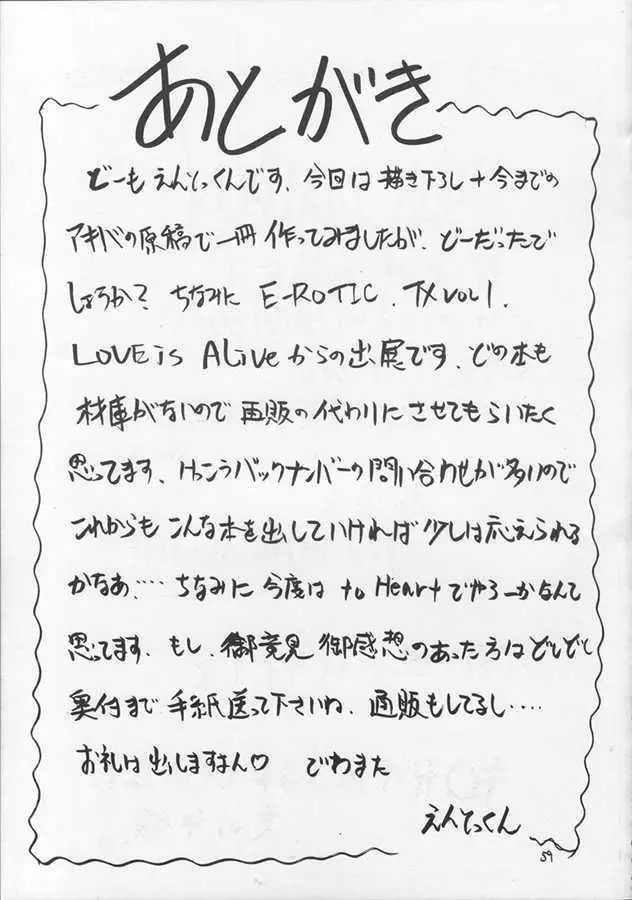 あとがき
どーもえんとっくんです、今回は描き下ろし+今までの
アキバの原稿で一冊作ってみましたが、どーだったで
しょうか? ちなみに E-ROTIC、TX VOL1、
LOVE is ALiveからの出展です、どの本も
在庫がないので再販の代わりにさせてもらいたく
思ってます、けっこうバックナンバーの問い合わせが多いので
これからもこんな本を出していければ少しは応えられる
かなあ、… ちなみに今度は to Heartでやろーかなんて
思ってます、もし、御意見御感想のあった方はどしどし
奥付まで手紙送って下さいね、通販もしてるし‥‥
お礼は出しますよん♡ でわまた
えんとっくん
59